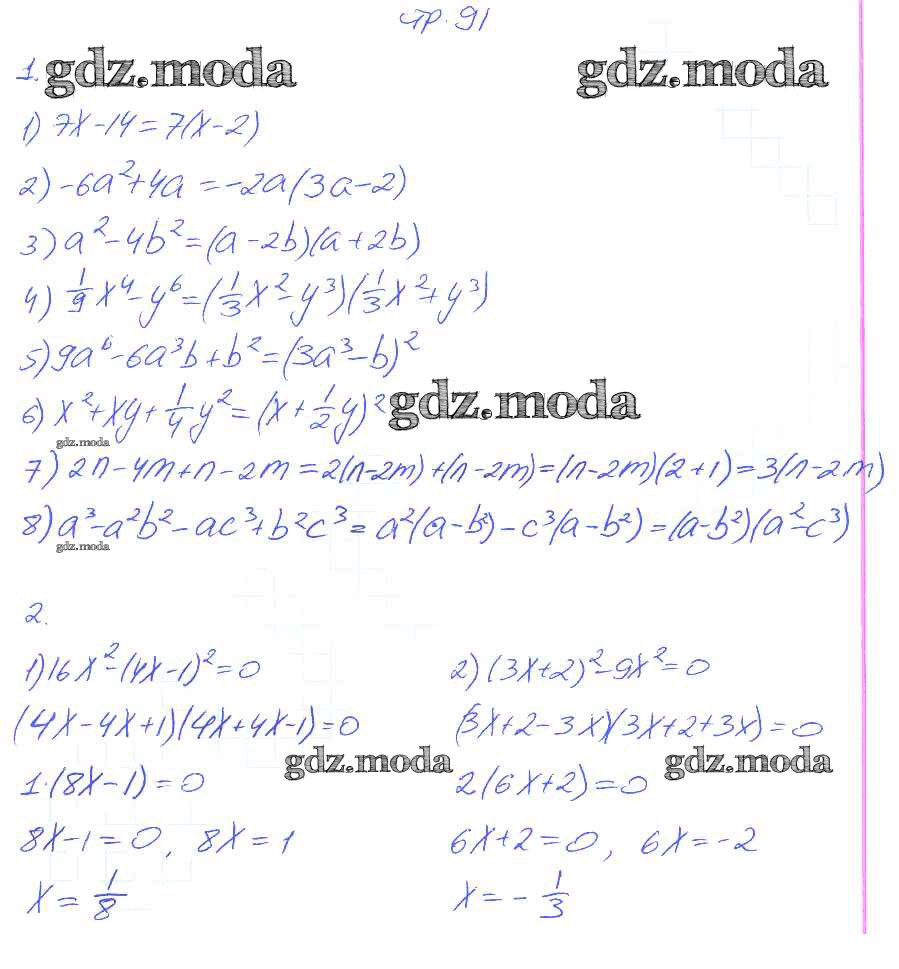 стр. 91
1. gdz.moda gdz.moda
1) 7x-14=7(x-2)
2) -6a²+4a=-2a(3a-2)
3) a²-4b²=(a-2b)(a+2b)
4) 1/9x⁴-y⁶=(1/3x²-y³)(1/3x²+y³)
5) 9a⁶-6a³b+b²=(3a³-b)²
6) x²+xy+1/4y²=(x+1/2y)² gdz.moda
gdz.moda
7) 2n-4m+n-2m=2(n-2m)+(n-2m)=(n-2m)(2+1)=3(n-2m)
8) a³-a²b²-ac³+b²c³=a²(a-b²)-c³(a-b²)=(a-b²)(a²-c³)
gdz.moda
2.
1) 16x²-(4x-1)²=0
(4x-4x+1)(4x+4x-1)=0
gdz.moda
1·(8x-1)=0
8x-1=0, 8x=1
x=1/8
2) (3x+2)²-9x²=0
(3x+2-3x)(3x+2+3x)=0
gdz.moda
2(6x+2)=0
6x+2=0, 6x=-2
x=-1/3